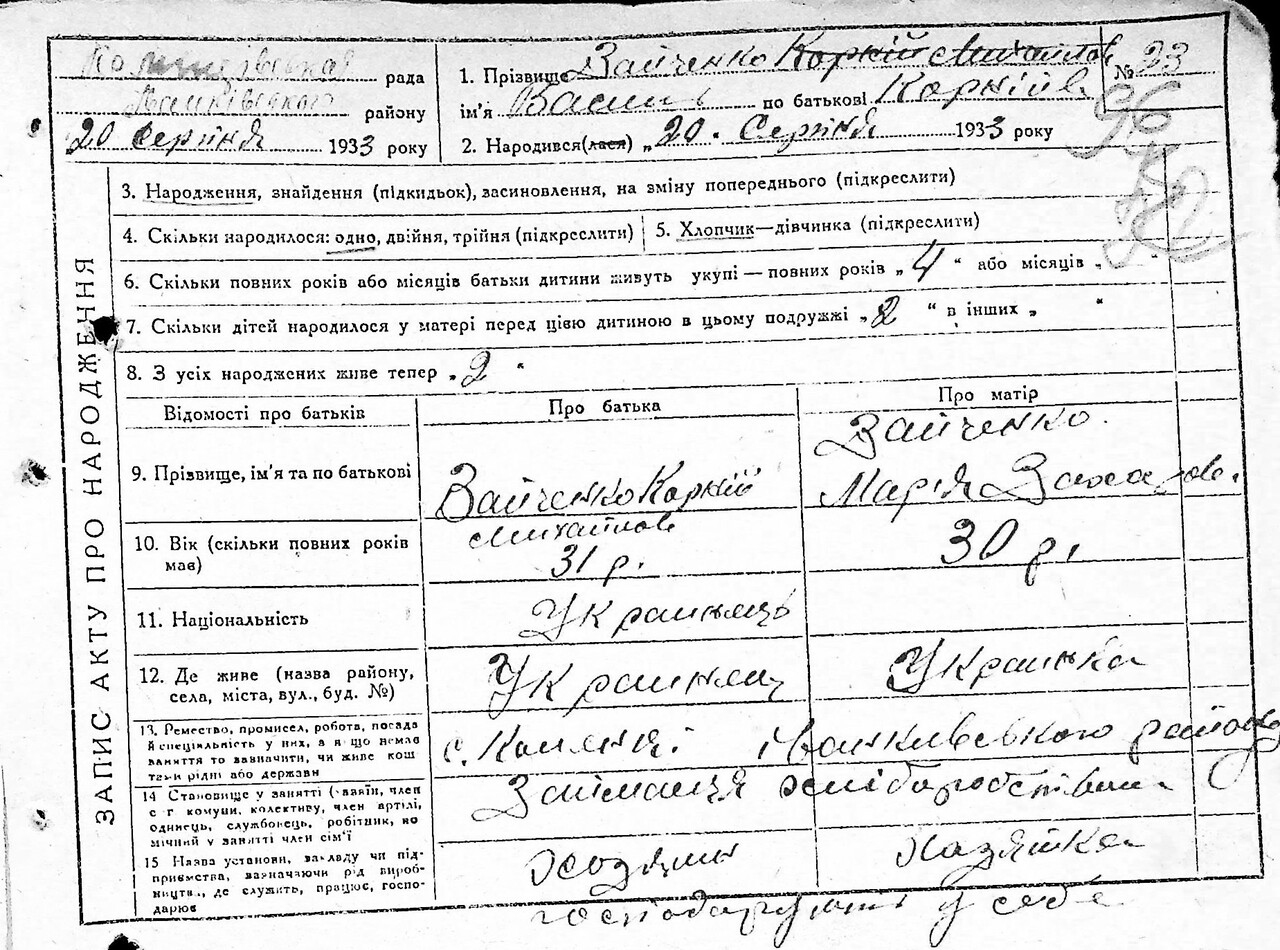 рада
району
20 Серпня 1933 року
1. Прізвище Зайченко Корній Михайлов
ім'я Василь по батькові Корніїв
2. Народився(лася) „20. Серпня 1933 року
№ 23
3. Народження, знайдення (підкидьок), засиновлення, на зміну попереднього (підкреслити)
4. Скільки народилося: одно, двійня, трійня (підкреслити)
5. Хлопчик—дівчинка (підкреслити)
6. Скільки повних років або місяців батьки дитини живуть укупі — повних років „ 4 “ або місяців „ “
7. Скільки дітей народилося у матері перед цією дитиною в цьому подружжі „ 2 “ в інших „ “
8. З усіх народжених живе тепер „ 2 “
ЗАПИС АКТУ ПРО НАРОДЖЕННЯ
Відомості про батьків
Про батька
Про матір
9. Прізвище, ім'я та по батькові
Зайченко Корній
Михайлов
Зайченко
Марія Захаров.
10. Вік (скільки повних років
мав)
31 р.
30 р.
11. Національність
Украинець
12. Де живе (назва району,
села, міста, вул., буд. №)
Украинец
Украинка
13. Ремество, промисел, робота, посада
й спеціальність у них, а якщо немає
заняття то зазначити, чи живе кош
тами рідні або держави
с. району
14 Становище у занятті (хазяїн, член
с г комуни, колективу, член артілі,
одинець, службовець, робітник, по
мічний у занятті член сім'ї
Займаиця
15 Назва установи, закладу чи під-
приємства, зазначаючи рід вироб-
ництва, де служить, працює, госпо-
дарює
Хозяин
Хазяйка
господарують у себе